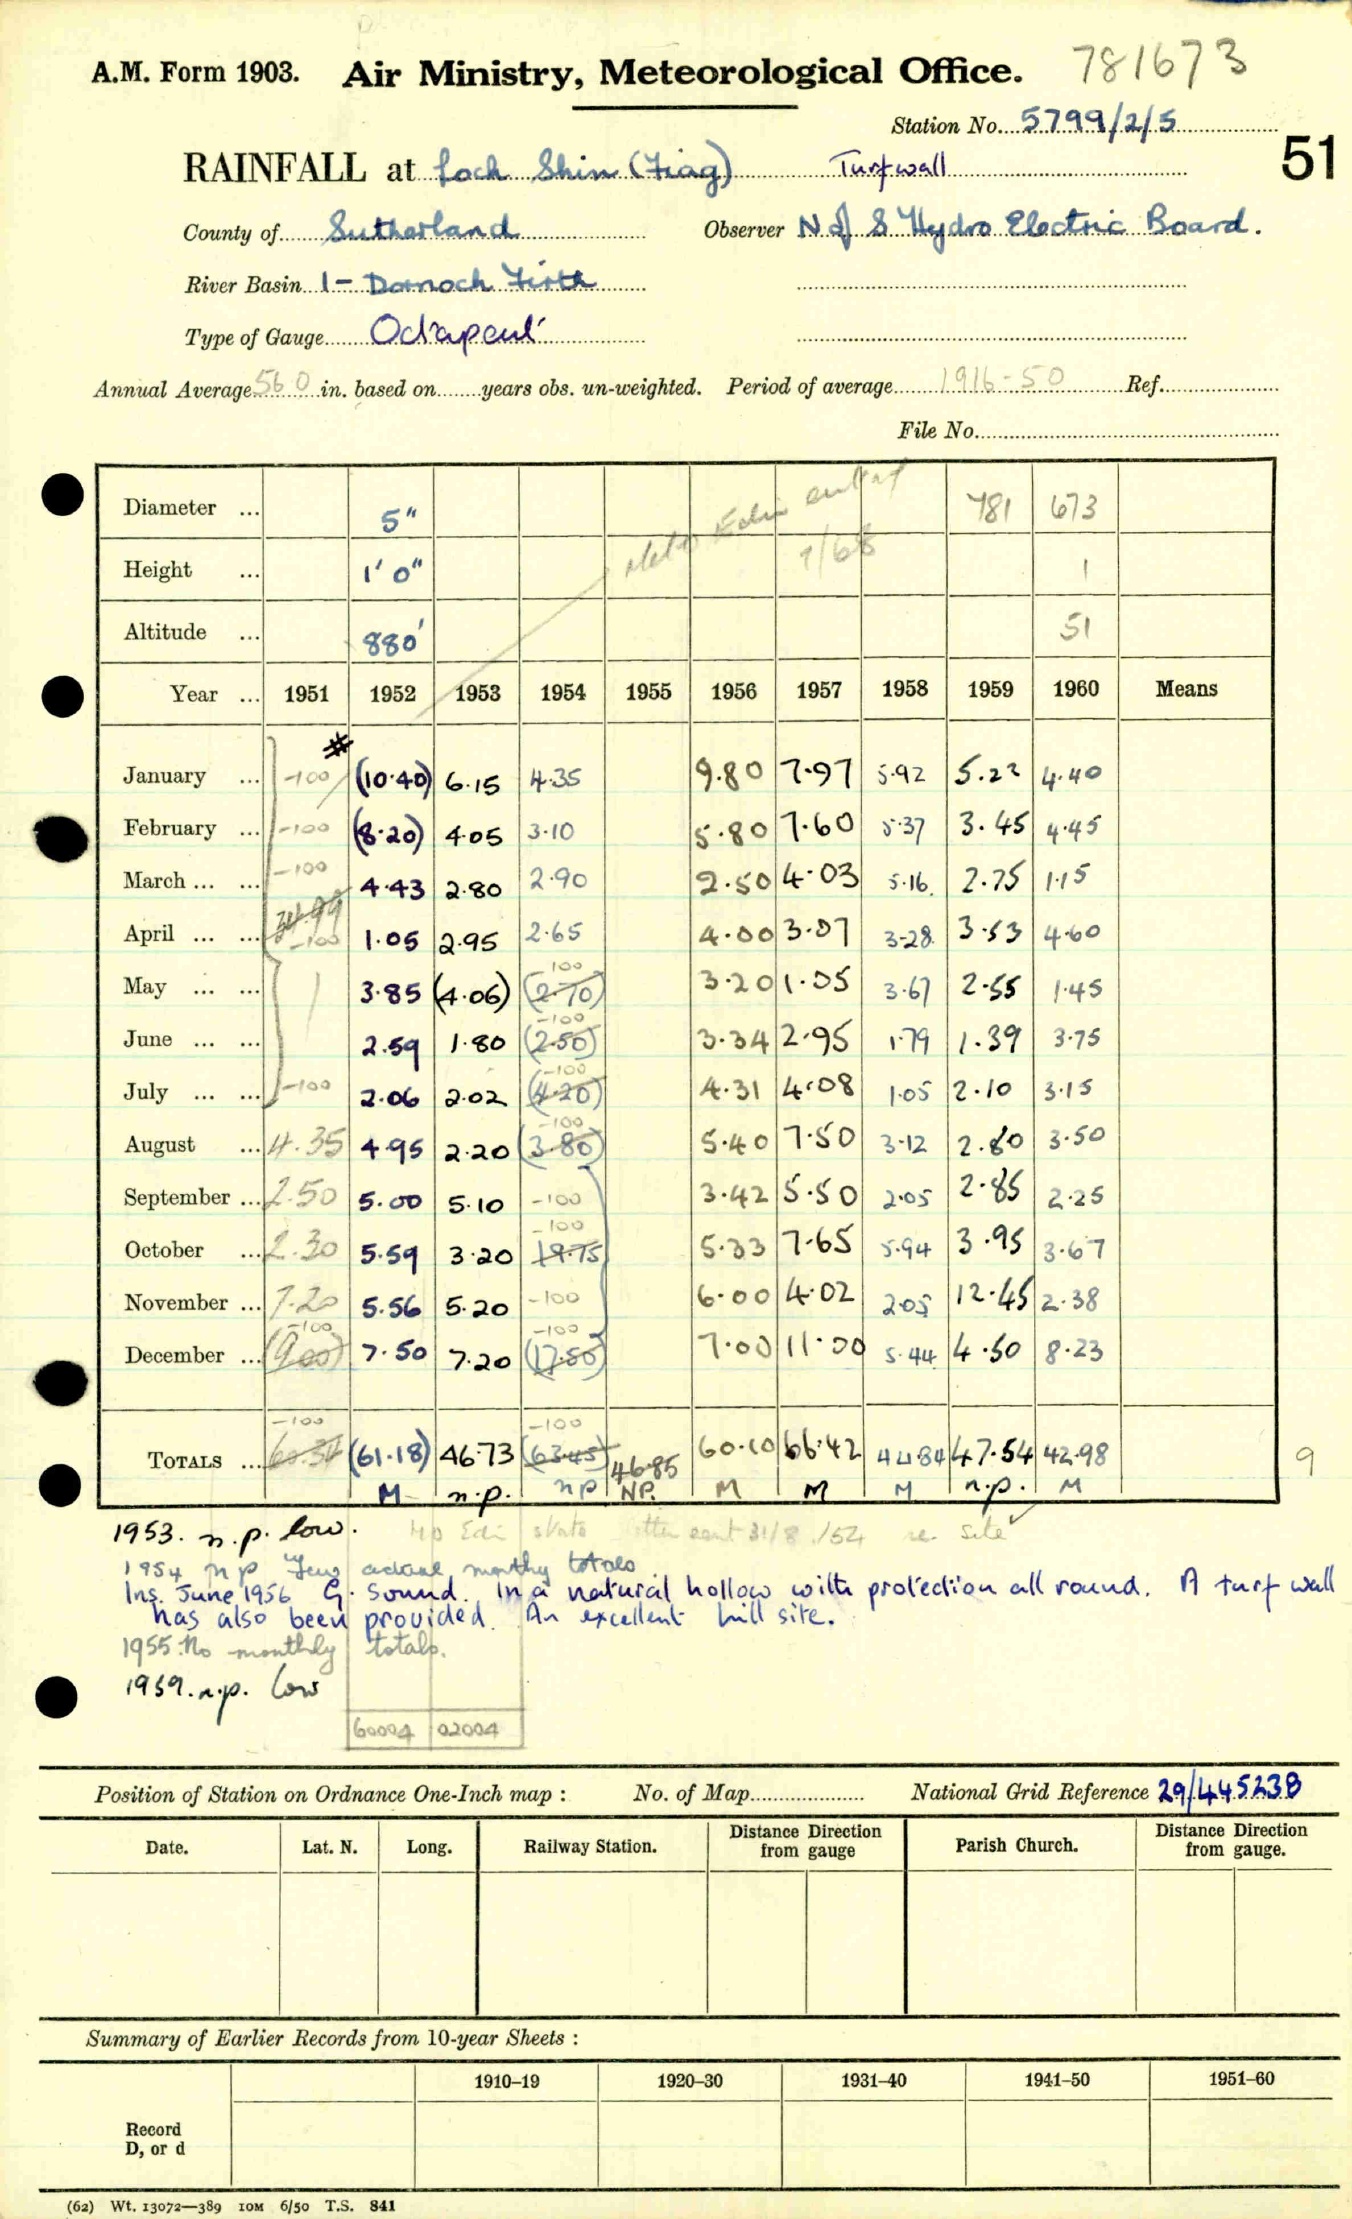 A.M. Form 1903. Air Ministry, Meteorological Office. 781673
Station No. 5799/2/5
51
RAINFALL at Loch Shin (Fiag) Turf wall
County of Sutherland Observer N of S Hydro Electric Board.
River Basin 1 - Dornoch Firth
Type of Gauge Octapent
Annual Average 56.0 in. based on years obs. un-weighted. Period of average 1916-50 Ref.
File No.
Diameter ... 5" 781 673
Height ... 1' 0" 7/68 1
Altitude ... 880' 51
Year ... 1951 1952 1953 1954 1955 1956 1957 1958 1959 1960 Means
#
January ... -100 (10.40) 6.15 4.35 9.80 7.97 5.92 5.22 4.40
February ... -100 (8.20) 4.05 3.10 5.80 7.60 5.37 3.45 4.45
March ... ... -100 4.43 2.80 2.90 2.50 4.03 5.16 2.75 1.15
34.99
April ... ... -100 1.05 2.95 2.65 4.00 3.07 3.28 3.53 4.60
-100
May ... ... 3.85 (4.06) (2.70) 3.20 1.05 3.67 2.55 1.45
-100
June ... ... 2.59 1.80 (2.50) 3.34 2.95 1.79 1.39 3.75
-100
July ... ... -100 2.06 2.02 (4.20) 4.31 4.08 1.05 2.10 3.15
-100
August ... 4.35 4.95 2.20 (3.80) 5.40 7.50 3.12 2.80 3.50
September ... 2.50 5.00 5.10 -100 3.42 5.50 2.05 2.85 2.25
-100
October ... 2.30 5.59 3.20 19.75 5.33 7.65 5.94 3.95 3.67
November ... 7.20 5.56 5.20 -100 6.00 4.02 2.05 12.45 2.38
-100 -100
December ... (9.00) 7.50 7.20 (17.50) 7.00 11.00 5.44 4.50 8.23
-100 -100
TOTALS ... 60.34 (61.18) 46.73 (63.45) 46.85 60.10 66.42 44.84 47.54 42.98 9
M n.p. np NP. M M M n.p. M
1953. n.p. low. MO Edi state letter sent 31/8/54 re. site
1954 n p Few actual monthly totals
Ins. June 1956 G. Sound. In a natural hollow with protection all round. A turf wall
has also been provided. An excellent hill site.
1955. No monthly totals.
1959. n.p. low
60004 02004
Position of Station on Ordnance One-Inch map : No. of Map National Grid Reference 29/445238
Date. Lat. N. Long. Railway Station. Distance from gauge Direction Parish Church. Distance from gauge. Direction
Summary of Earlier Records from 10-year Sheets :
1910–19 1920–30 1931–40 1941–50 1951–60
Record
D, or d
(62) Wt. 13072—389 10M 6/50 T.S. 841